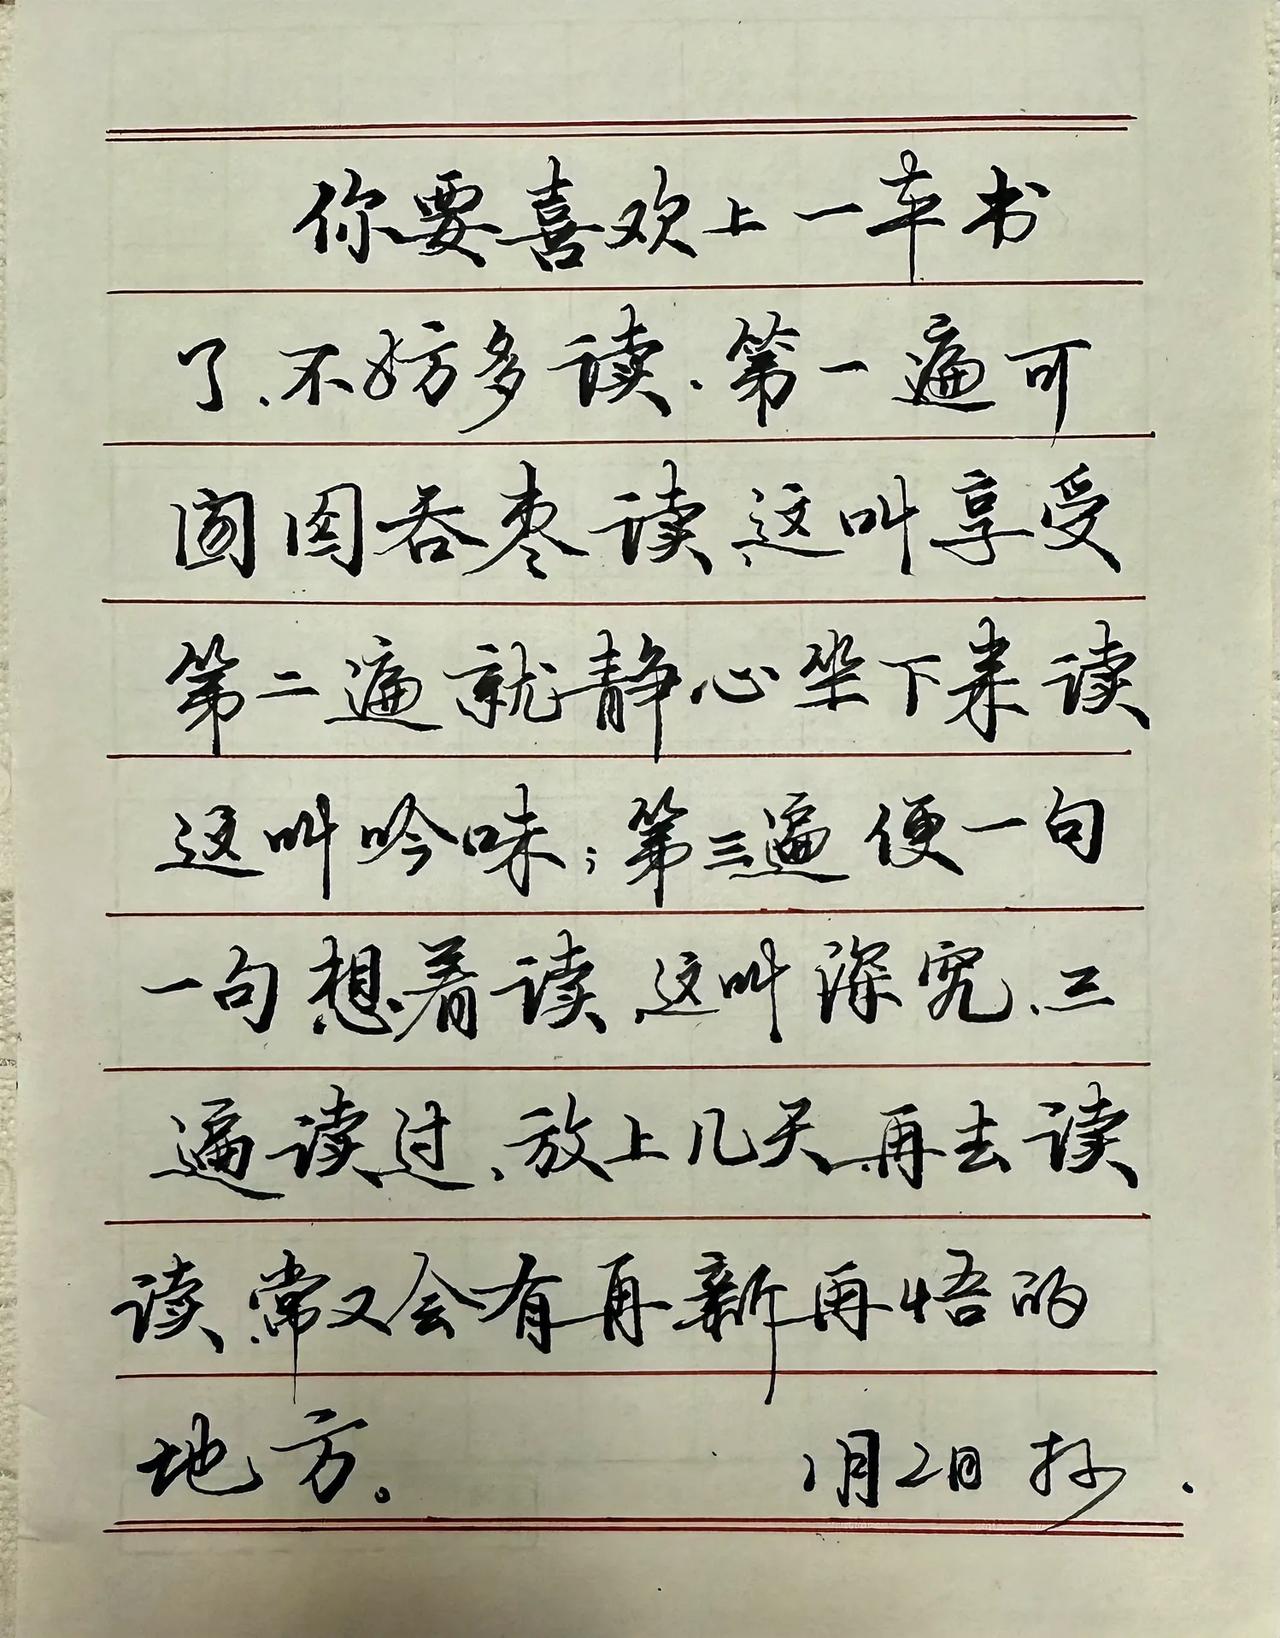 你要喜欢上一本书
了、不妨多读、第一遍可
囫囵吞枣读,这叫享受
第二遍就静心坐下来读
这叫吟味;第三遍便一句
一句想着读,这叫深究、三
遍读过、放上几天,再去读
读,常又会有再新再悟的
地方。 1月2日 抄.